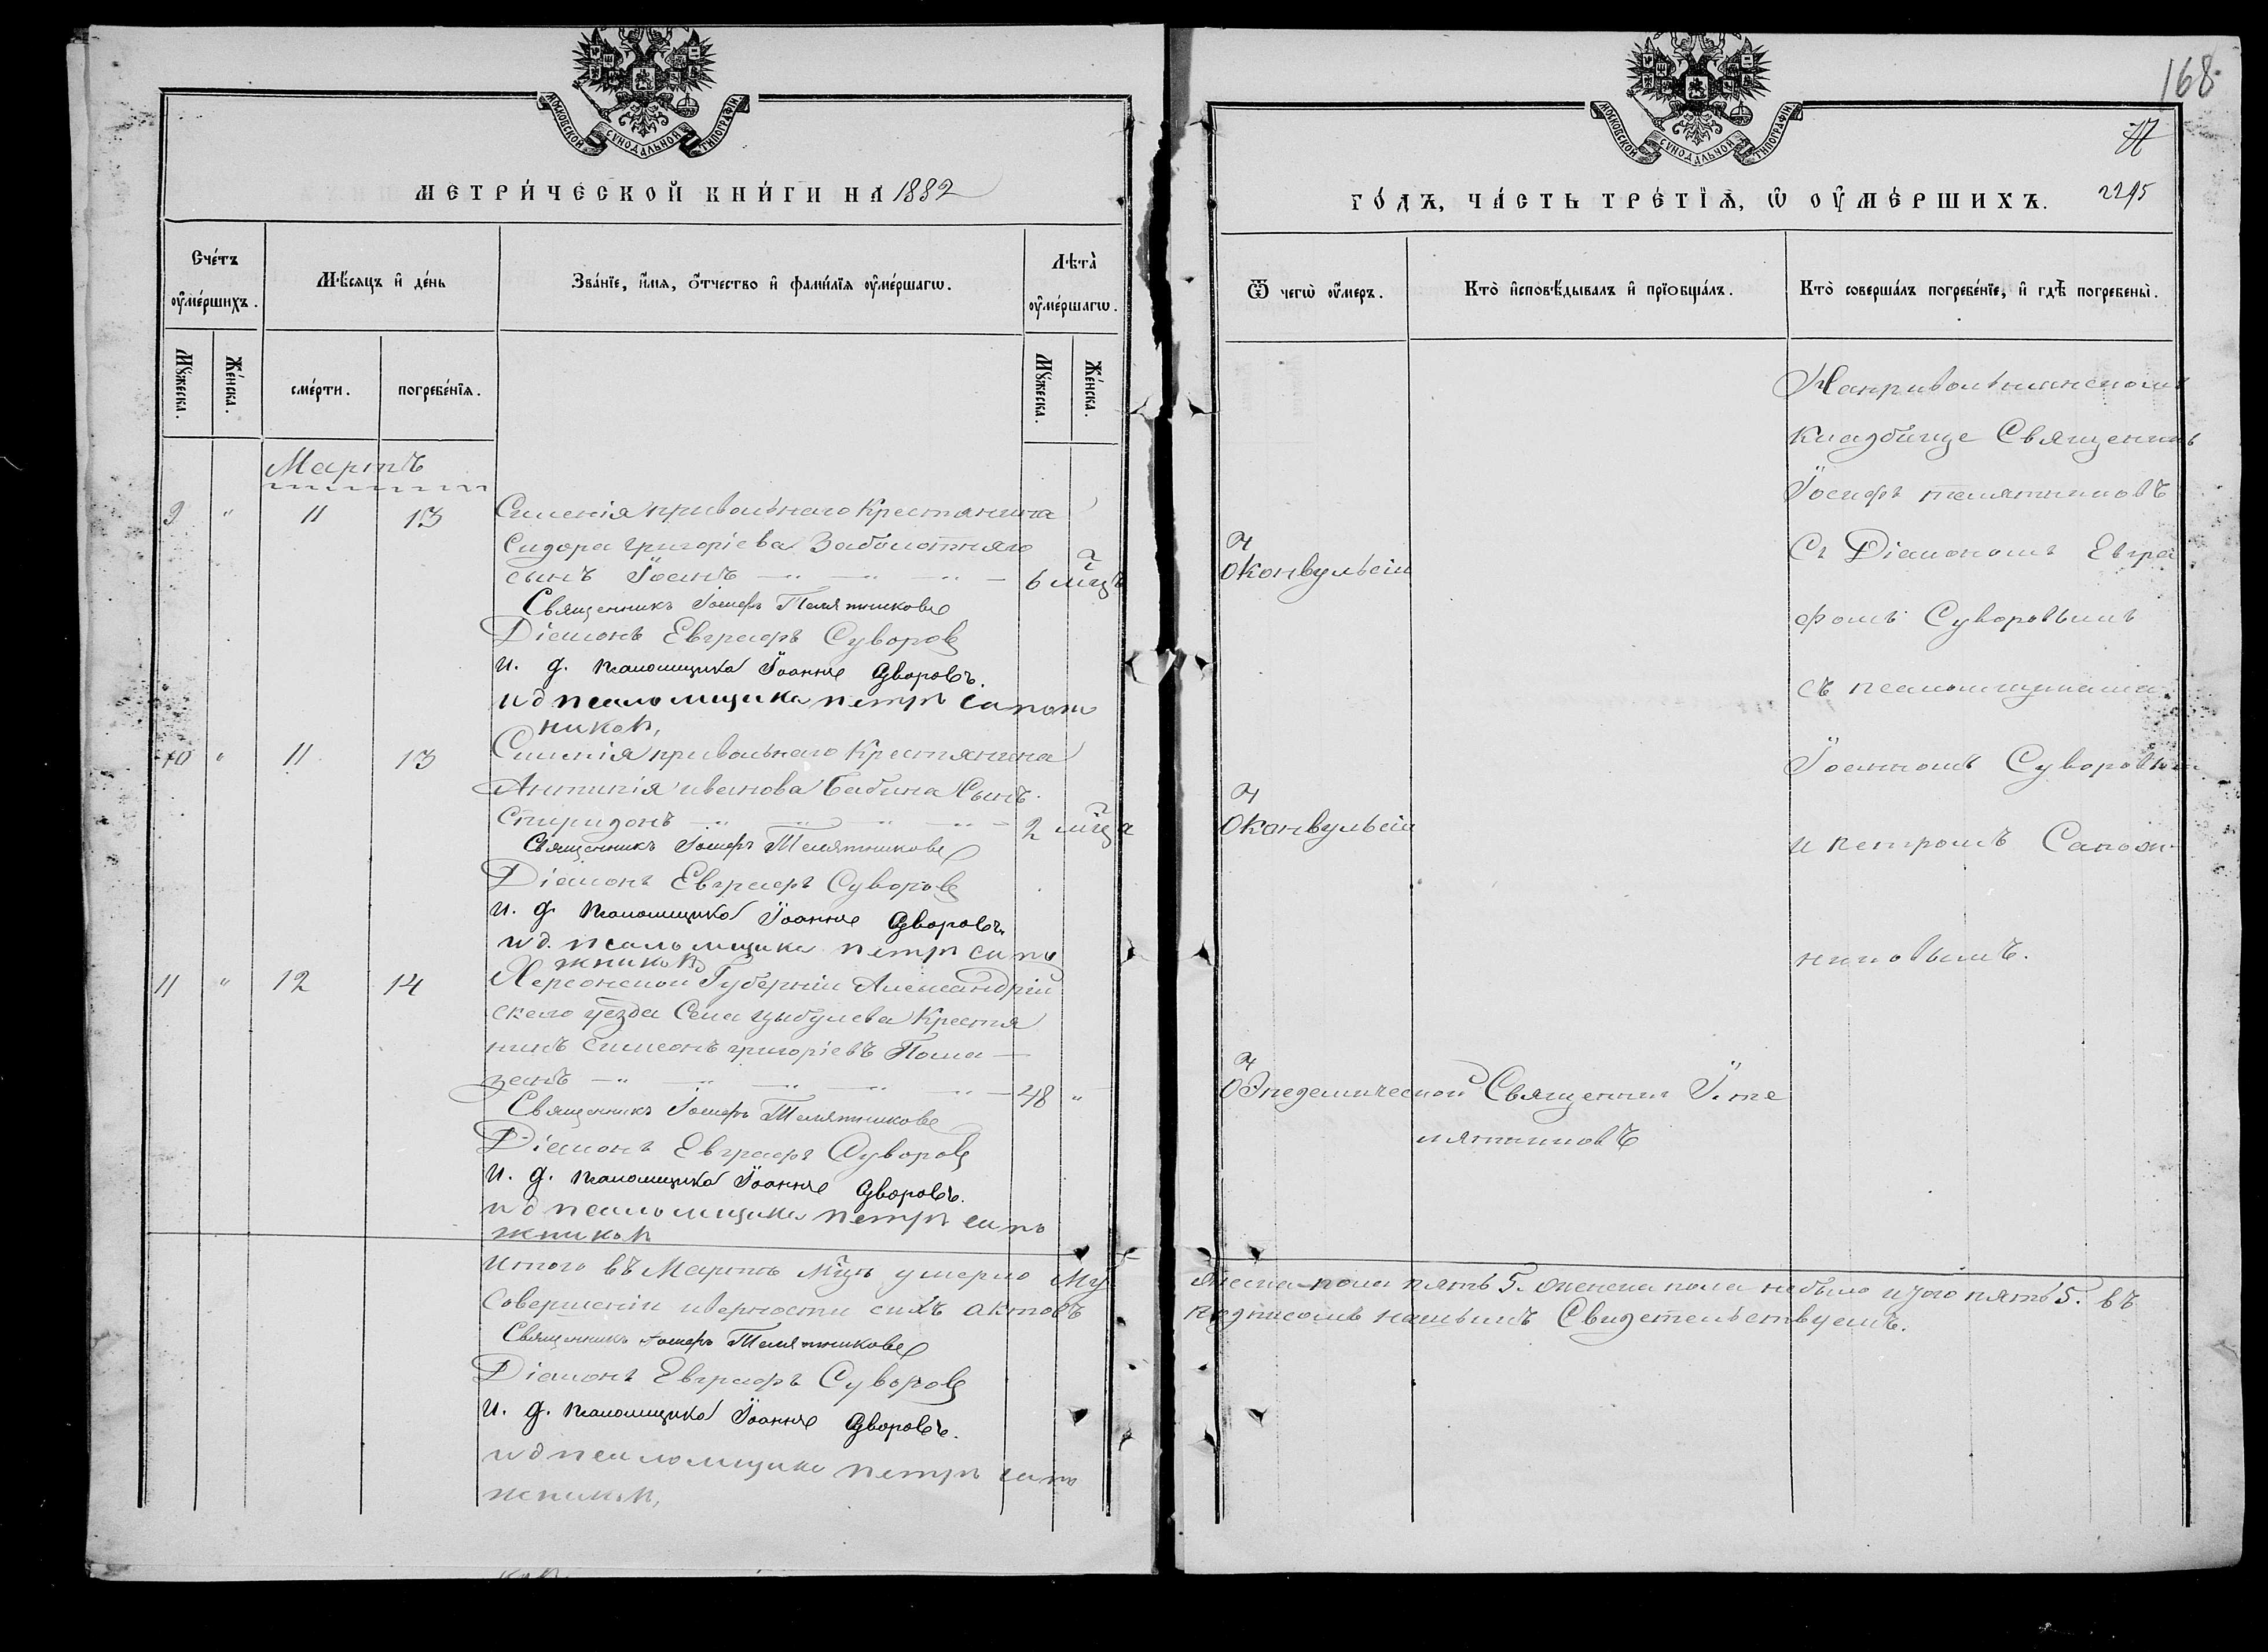 МОСКОВСКОЙ СУНОДАЛЬНОЙ ТИПОГРАФІИ.
МЕТРИ́ЧЕСКОЙ КНИ́ГИ НА 1882
Сче́тъ ᲂу҆ме́ршихъ.
Мѣ́сяцъ и҆ де́нь
Зва́нїе, и҆́мя, ѻ҆́тчество и҆ фами́лїя ᲂу҆ме́ршагѡ.
Лѣта̀ ᲂу҆ме́ршагѡ.
Мꙋ́жеска.
Же́нска.
сме́рти.
погребе́нїѧ.
Мꙋ́жеска.
Же́нска.
Мартъ
9 " 11 13 Силенія привольнаго Крестянина
Сидора григоріева Заболотняго
сынъ Іоанъ — " — " — " — 6 мцъ
Священникъ Іосифъ Телятниковъ
Діаконъ Евграфъ Суворов
И. д. псаломщика Іоаннъ Суворовъ.
И д псаломщика петръ сапож
никовъ,
10 " 11 13 Силенія привольнаго Крестянина
Антипія иванова Бабина Сынъ
Спиридонъ — " — " — " — 2 мца
Священникъ Іосифъ Телятниковъ
Діаконъ Евграфъ Суворов
И. д. псаломщика Іоаннъ Суворовъ.
и д. псаломщика петръ сапо
жниковъ
11 " 12 14 Херсонской Губерніи Александрій
скаго уезда Села цыбулева Крестя
нинъ Симеонъ григоріевъ Пома-
занъ — " — " — " — " — 48 "
Священникъ Іосифъ Телятниковъ
Діаконъ Евграфъ Суворов
И. д. псаломщика Іоаннъ Суворовъ.
и д псаломщика петръ сапо
жниковъ
Итого въ Мартѣ мцѣ умерло Му
Совершеніи иверности сихъ актовъ
Священникъ Іосифъ Телятниковъ
Діаконъ Евграфъ Суворов
И. д. псаломщика Іоаннъ Суворовъ.
и д псаломщика петръ сапо
жниковъ,
168
17
МОСКОВСКОЙ СУНОДАЛЬНОЙ ТИПОГРАФІИ.
ГО́ДЪ, ЧА́СТЬ ТРЕ́ТЇѦ, Ѡ҆ ОУ҆МЕ́РШИХЪ.
Ѿ чегѡ̀ ᲂу҆́меръ.
Кто̀ и҆сповѣ́дывалъ и҆ прїѡбща́лъ.
Кто̀ соверша́лъ погребе́нїе, и҆ гдѣ̀ погребены̀.
Напривольнянскомъ
кладбище Священикъ
Іосифъ телятниковъ
Съ Діакономъ Евгра
фомъ Суворовымъ
съ псаломщиками
Іоанномъ Суворовым
и петромъ Сапож-
никовымъ.
От конвульсіи
От конвульсіи
От Эпедемической Священик І. те
лятниковъ
жеска пола пять 5. женска пола небыло итого пять 5. въ
подписомъ нашымъ Свидетельствуемъ.